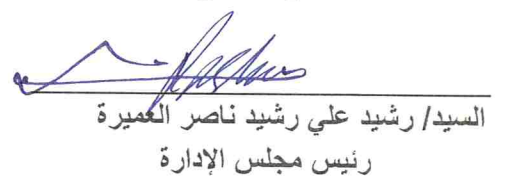 السيد/ رشيد علي رشيد ناصر العميرة
رئيس مجلس الإدارة